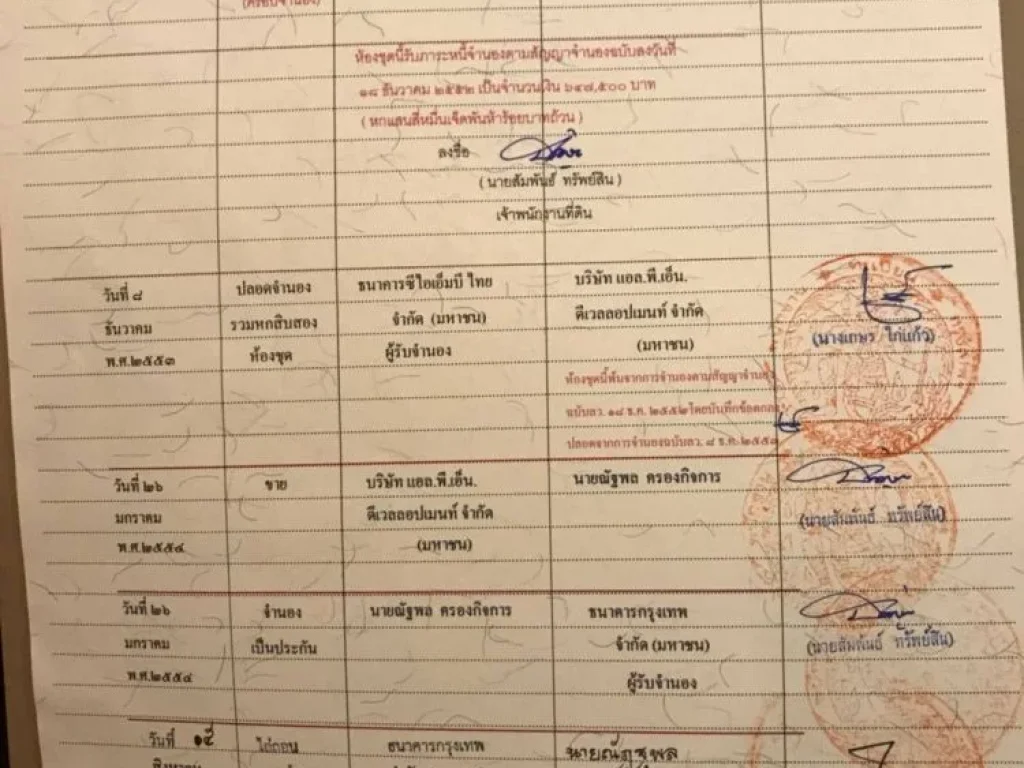 (ครอบจำนอง)
ห้องชุดนี้รับภาระหนี้จำนองตามสัญญาจำนองฉบับลงวันที่
๑๘ ธันวาคม ๒๕๕๒ เป็นจำนวนเงิน ๖๔๗,๕๐๐ บาท
( หกแสนสี่หมื่นเจ็ดพันห้าร้อยบาทถ้วน )
ลงชื่อ
( นายสัมพันธ์ ทรัพย์สิน )
เจ้าพนักงานที่ดิน
วันที่ ๘ ปลอดจำนอง ธนาคารซีไอเอ็มบี ไทย บริษัท แอล.พี.เอ็น.
ธันวาคม รวมหกสิบสอง จำกัด (มหาชน) ดีเวลลอปเมนท์ จำกัด
พ.ศ.๒๕๕๓ ห้องชุด ผู้รับจำนอง (มหาชน) (นางเกษร ไก่แก้ว)
ห้องชุดนี้พ้นจากการจำนองตามสัญญาจำนอง
ฉบับลว. ๑๘ ธ.ค. ๒๕๕๒ โดยบันทึกข้อตกลง
ปลอดจากการจำนองฉบับลว. ๘ ธ.ค. ๒๕๕๓
วันที่ ๒๖ ขาย บริษัท แอล.พี.เอ็น. นายณัฐพล ครองกิจการ
มกราคม ดีเวลลอปเมนท์ จำกัด (นายสัมพันธ์ ทรัพย์สิน)
พ.ศ.๒๕๕๔ (มหาชน)
วันที่ ๒๖ จำนอง นายณัฐพล ครองกิจการ ธนาคารกรุงเทพ
มกราคม เป็นประกัน จำกัด (มหาชน) (นายสัมพันธ์ ทรัพย์สิน)
พ.ศ.๒๕๕๔ ผู้รับจำนอง
วันที่ ๑๕ ไถ่ถอน ธนาคารกรุงเทพ นายณัฐพล
สิงหาคม